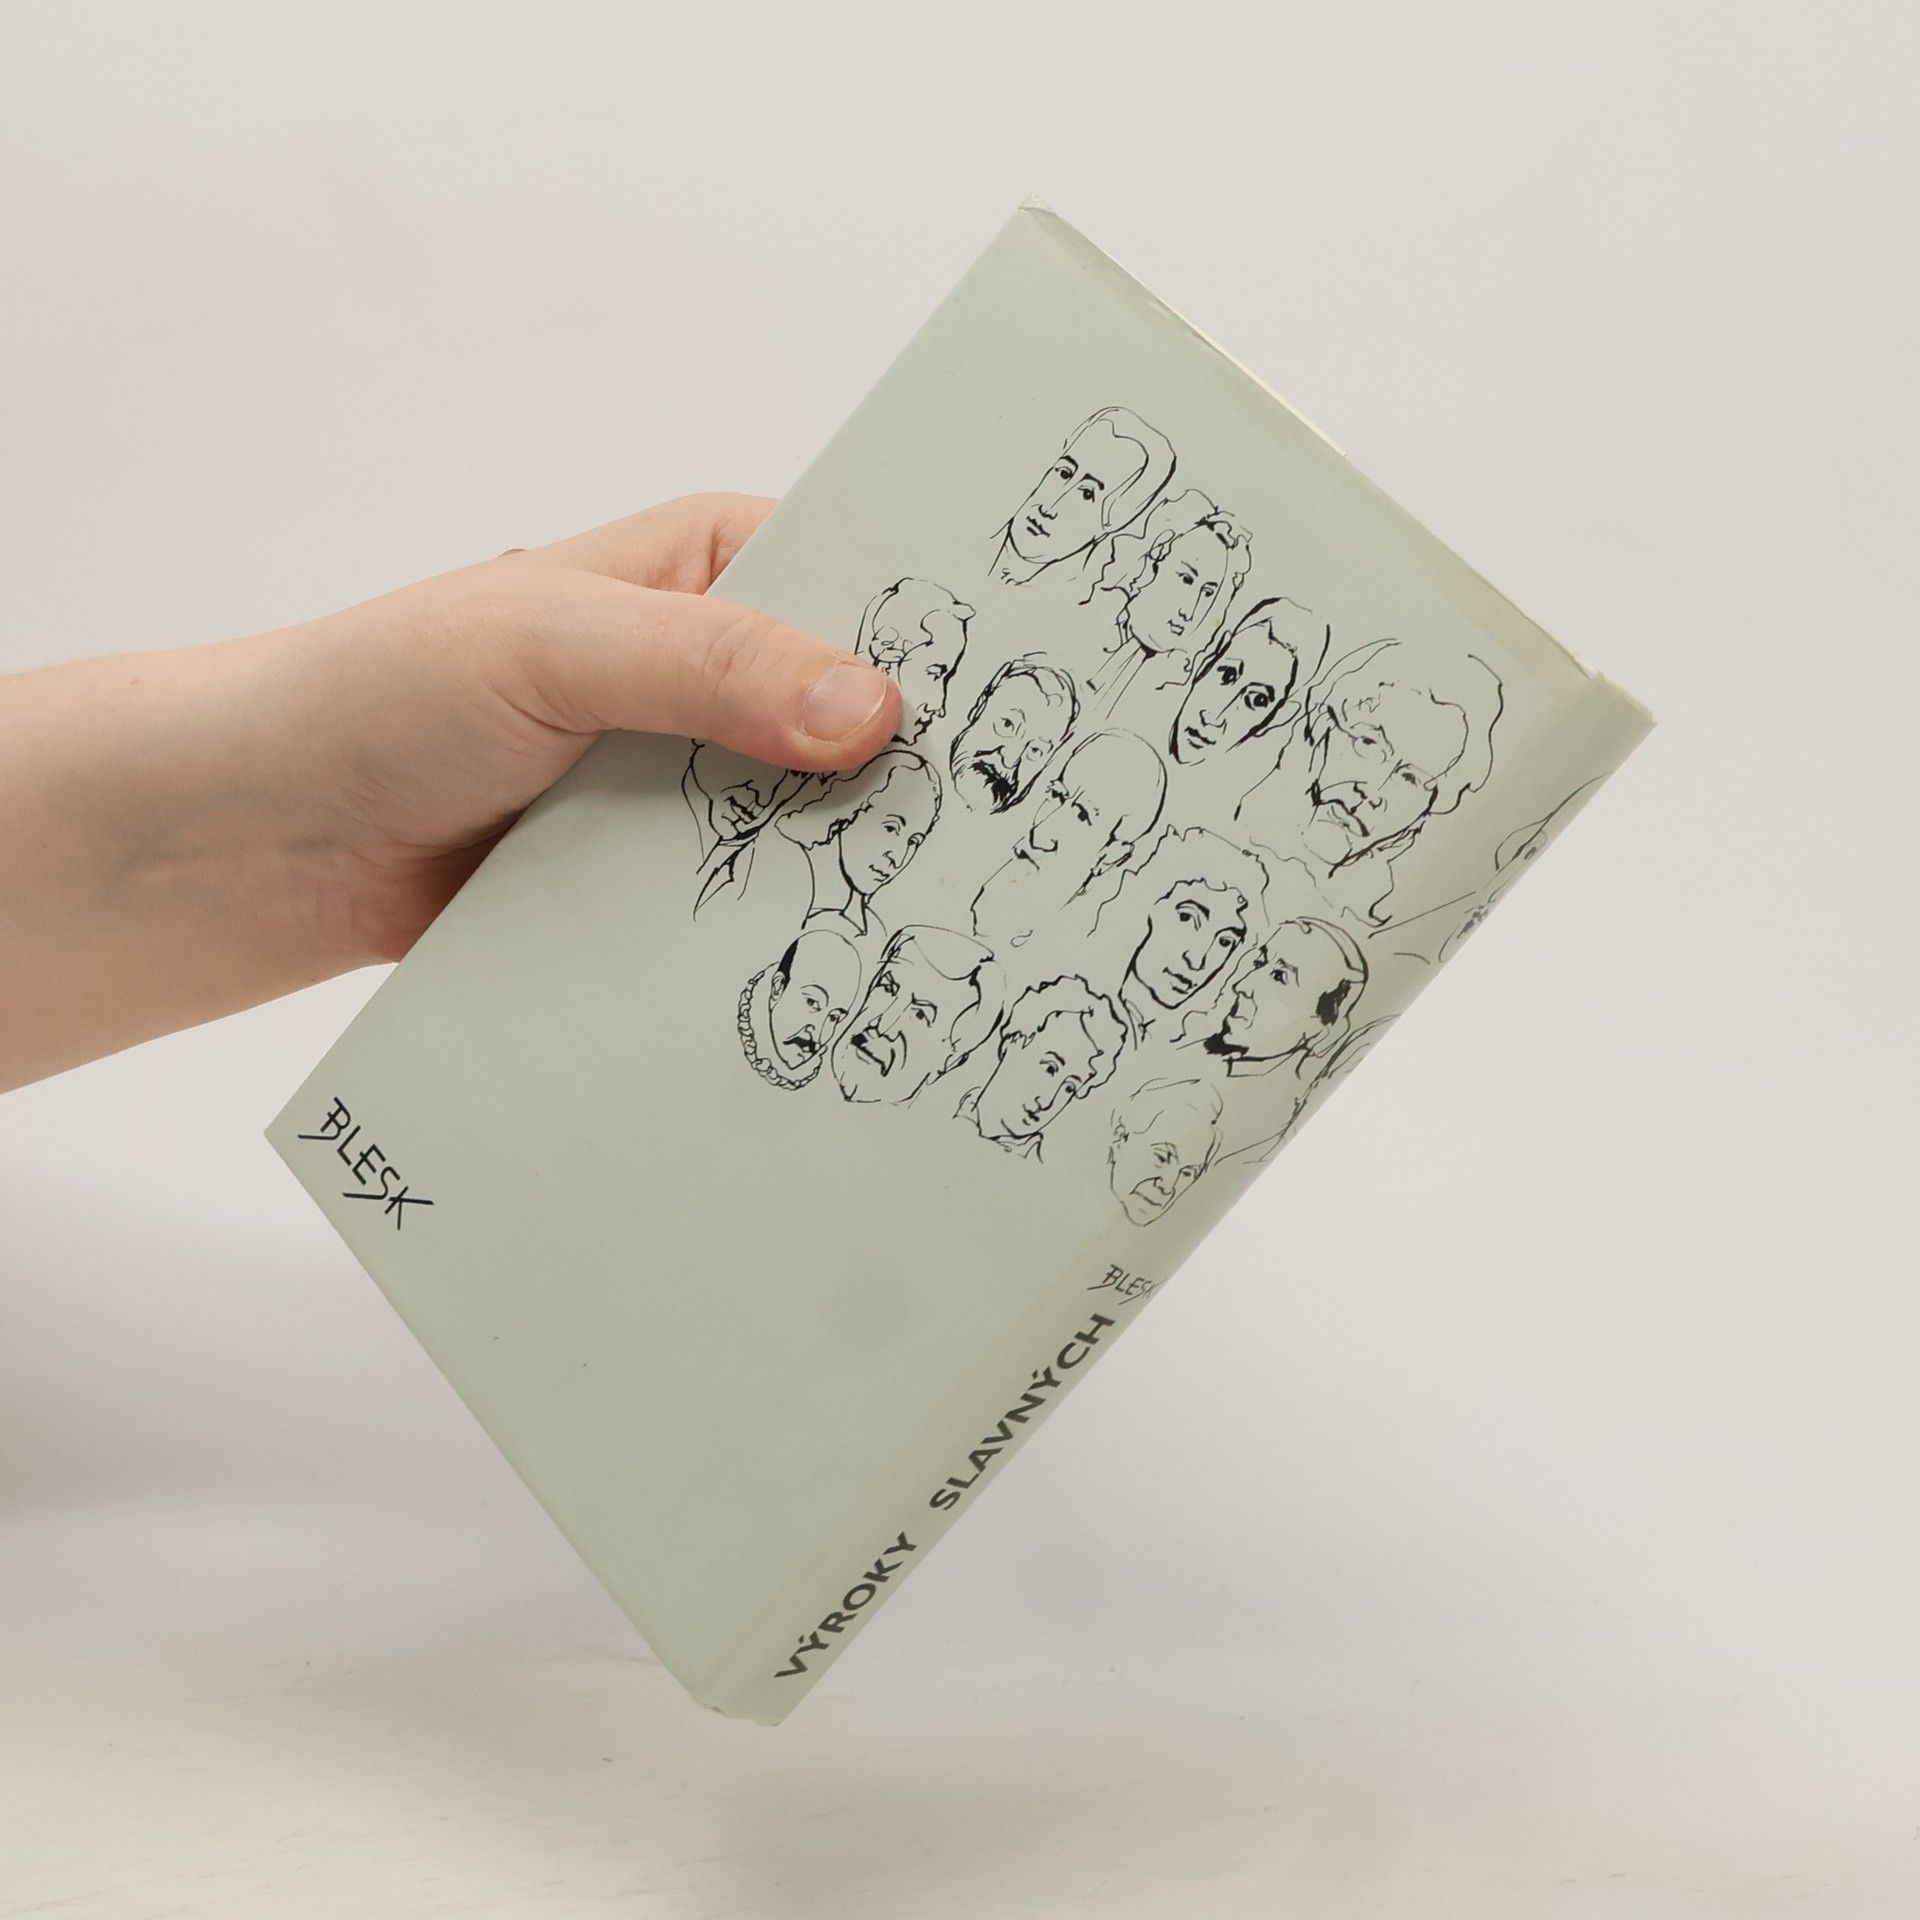 BLESK
BLESK
VÝROKY SLAVNÝCH